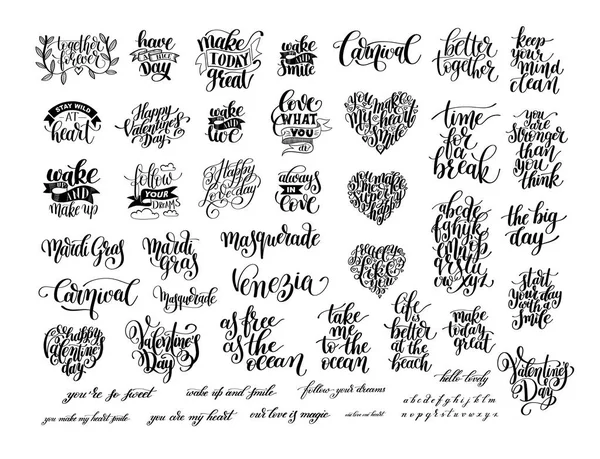 together
forever
have
a nice
Day
make
TODAY
great
wake
UP AND
smile
Carnival
better
together
keep
your
mind
clean
STAY WILD
AT
heart
Happy
Valentine's
Day
wake
UP AND
live
love
WHAT
YOU
do
you
make
my heart
smile
time
for
a
break
you
are
stronger
than
you
think
wake
UP AND
make up
follow
YOUR
DREAMS
Happy
Love day
always
IN
love
you
make me
super
happy
abcde
fghijk
lmno
pqrstu
vwxyz
the big
day
Mardi Gras
Mardi
gras
masquerade
Carnival
Masquerade
Venezia
start
your day
with a
smile
happy
Valentine's
day
Valentine's
Day
as free
as the
ocean
take
me
to the
ocean
life
is
better
at the
beach
make
today
great
Valentine's
Day
hello lovely
you're so sweet
wake up and smile
follow your dreams
a b c d e f g h i j k l m
you make my heart smile
you are my heart
our love is magic
n o p q r s t u v w x y z